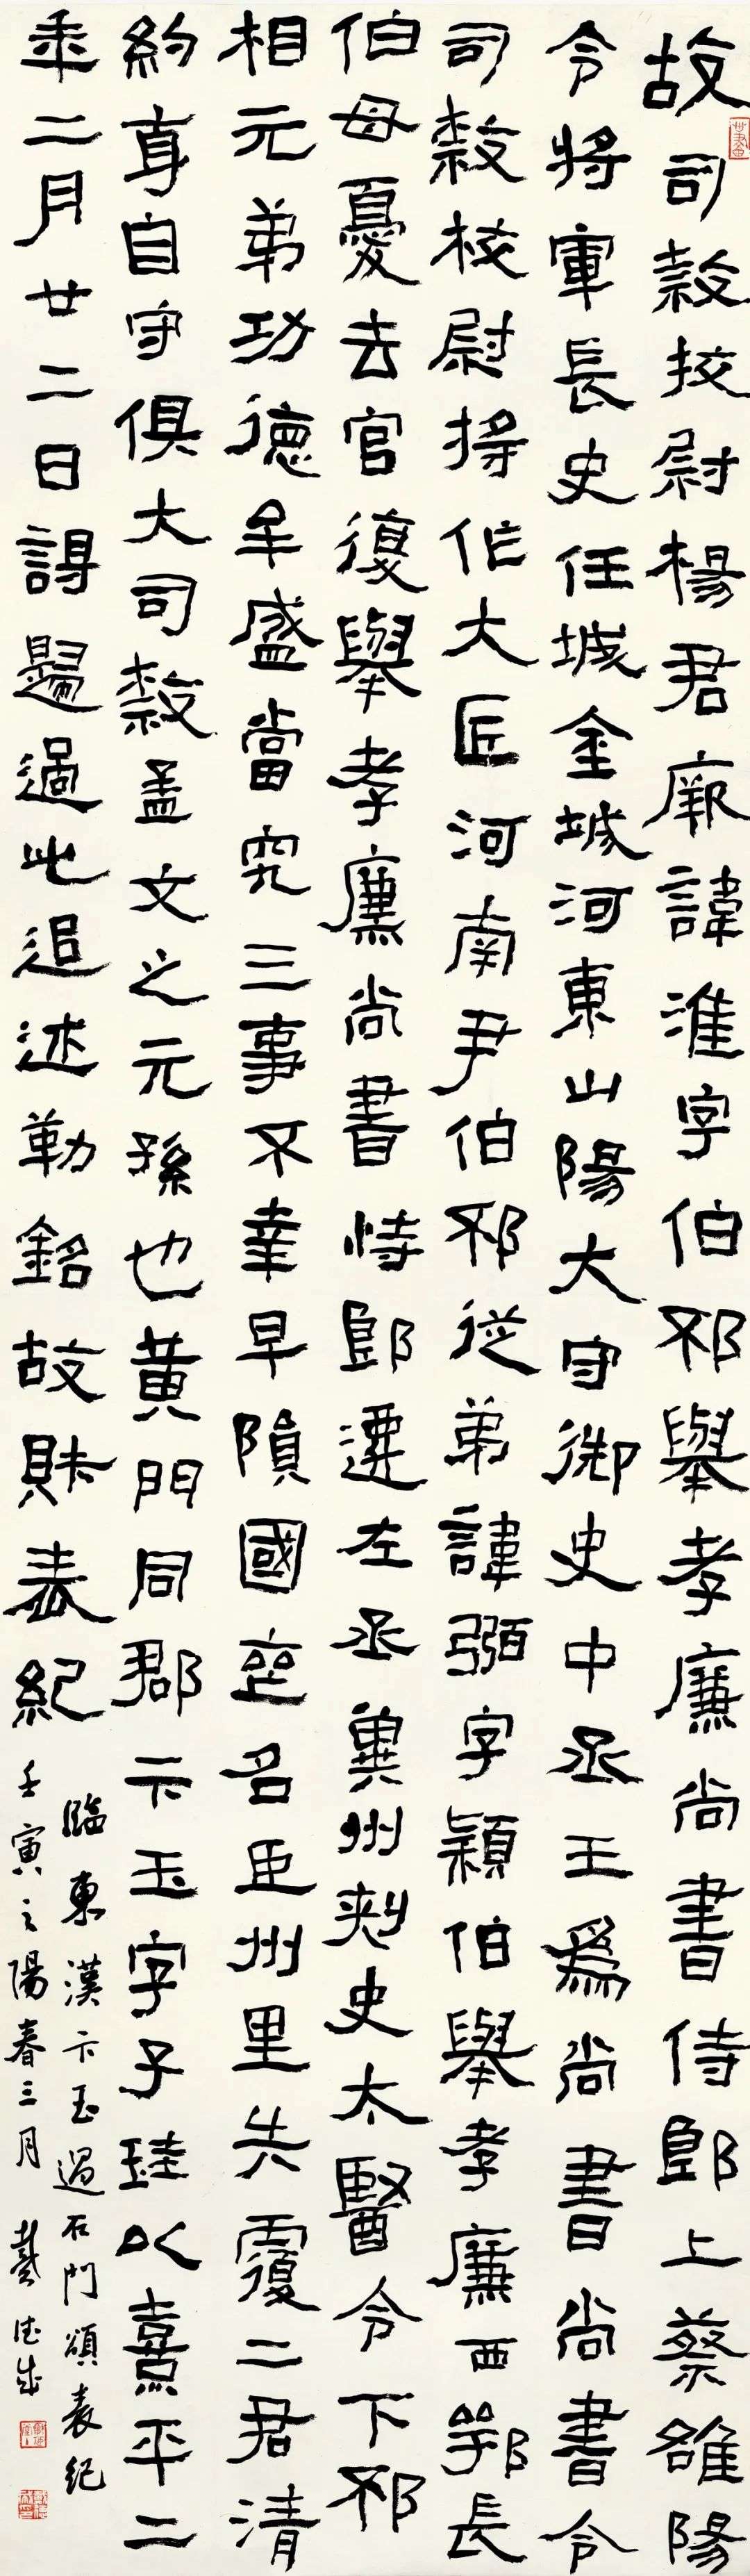 故司隷挍尉楊君厥諱淮字伯邳舉孝廉尚書侍郎上蔡雒陽
令將軍長史任城金城河東山陽大守御史中丞三爲尚書尚書令
司隷校尉將作大匠河南尹伯邳從弟諱弼字穎伯舉孝廉西鄂長
伯母憂去官復舉孝廉尚書侍郎遷左丞冀州刺史太醫令下邳
相元弟功德牟盛當究三事不幸早隕國喪名臣州里失覆二君清
約身自守俱大司隷孟文之元孫也黃門同郡卞玉字子珪以熹平二
年二月廿二日謁歸過此追述勒銘故財表紀
臨東漢卞玉過石門頌表紀
壬寅之陽春三月 戴